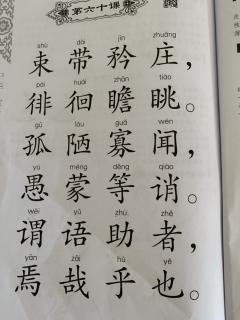 第六十课
shù dài jīn zhuāng
束带矜庄，
pái huái zhān tiào
徘徊瞻眺。
gū lòu guǎ wén
孤陋寡闻，
yú méng děng qiào
愚蒙等诮。
wèi yǔ zhù zhě
谓语助者，
yān zāi hū yě
焉哉乎也。